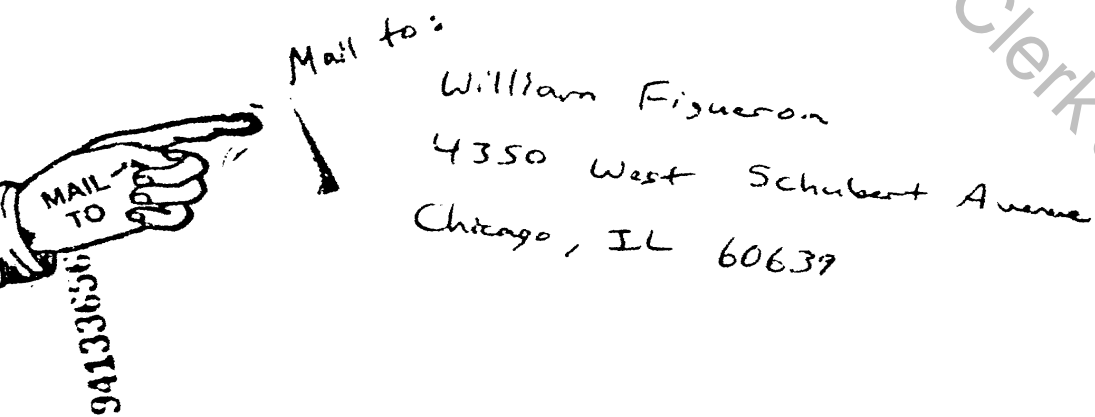 Clerk
Mail to:
William Figueroa
4350 West Schubert Avenue
Chicago, IL 60639
MAIL
TO
94133656